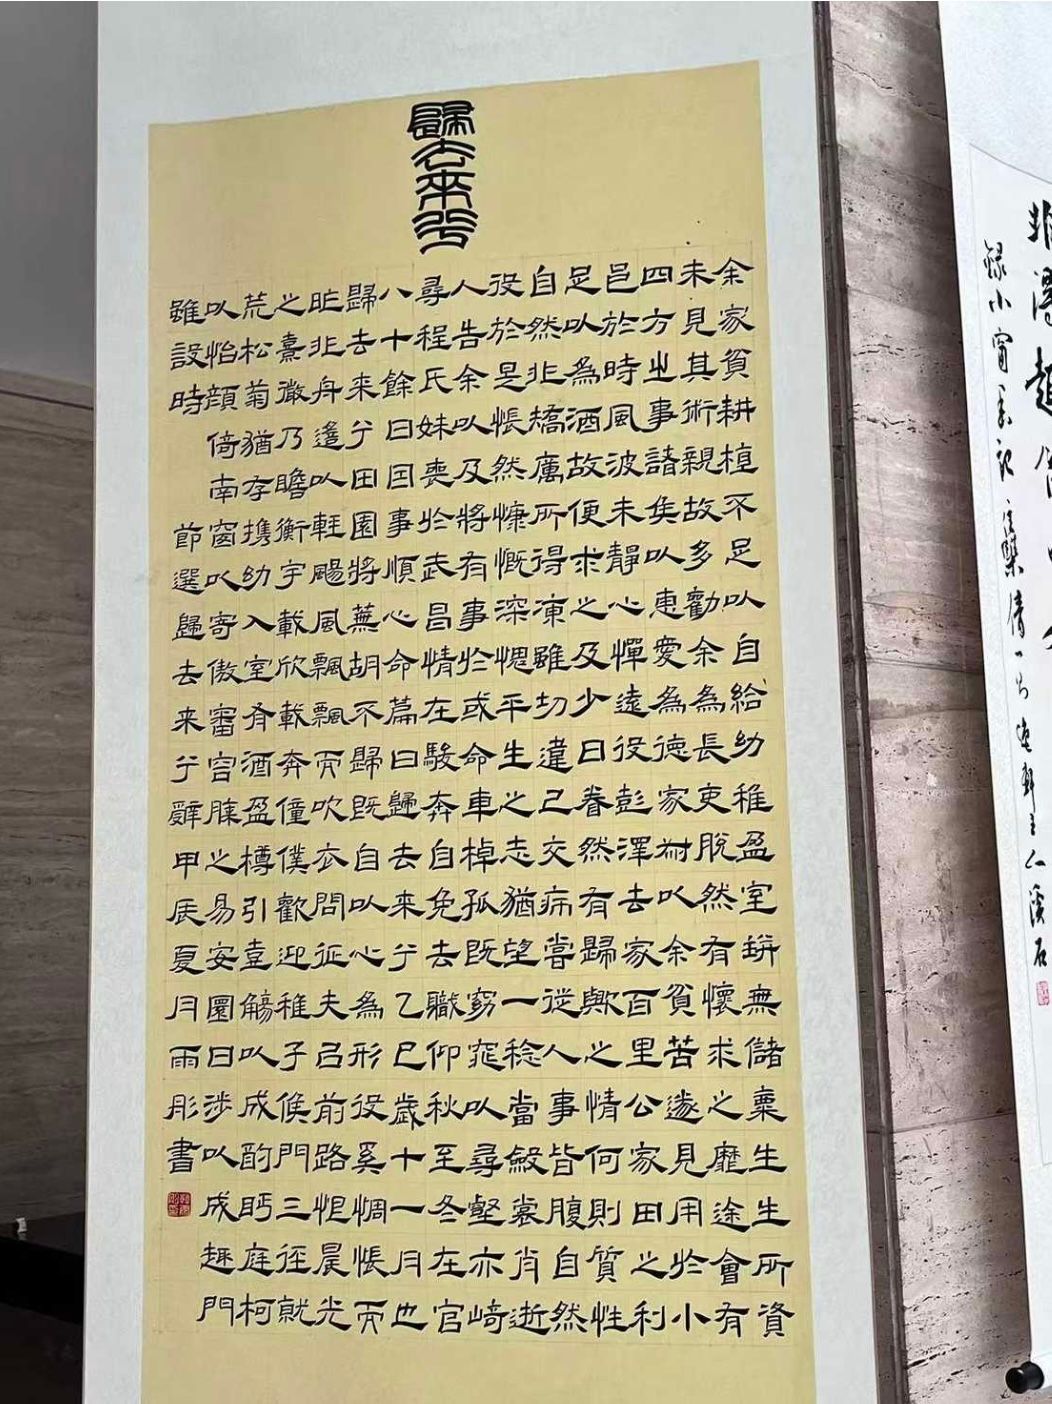 歸去來兮
余家貧耕植不足以自給幼稚盈室缾無儲粟生生所資
未見其術親故多勸余為長吏脫然有懷求之靡途會有
四方之事諸侯以惠愛為德家叔以余貧苦遂見用於小
邑於時風波未靜心憚遠役彭澤去家百里公家田之利
足以為酒故便求之及少日眷然有歸歟之情何則質性
自然非矯厲所得凍雖切違己交病嘗從人事皆腹自然
役於是悵然慷慨深愧平生之志猶望一稔當斂裳宵逝
人告余以及將有事於或命車棹孤既窈窕以尋壑亦崎
尋程氏妹喪於武昌情在駿奔自免去職仲秋至冬在官
八十餘日因事順心命篇曰歸去來兮乙巳歲十一月也
歸去來兮田園將蕪胡不歸既自以心為形役奚惆悵而
昨非舟遙以輕颺風飄飄而吹衣問征夫以前路恨晨光
之熹微乃瞻衡宇載欣載奔僮僕歡迎稚子候門三徑就
荒松菊猶存攜幼入室有酒盈樽引壺觴以成酌眄庭柯
以怡顏倚南窗以寄傲審容膝之易安園日涉以成趣門
雖設時
節選歸去來兮辭甲辰夏月雨彤書